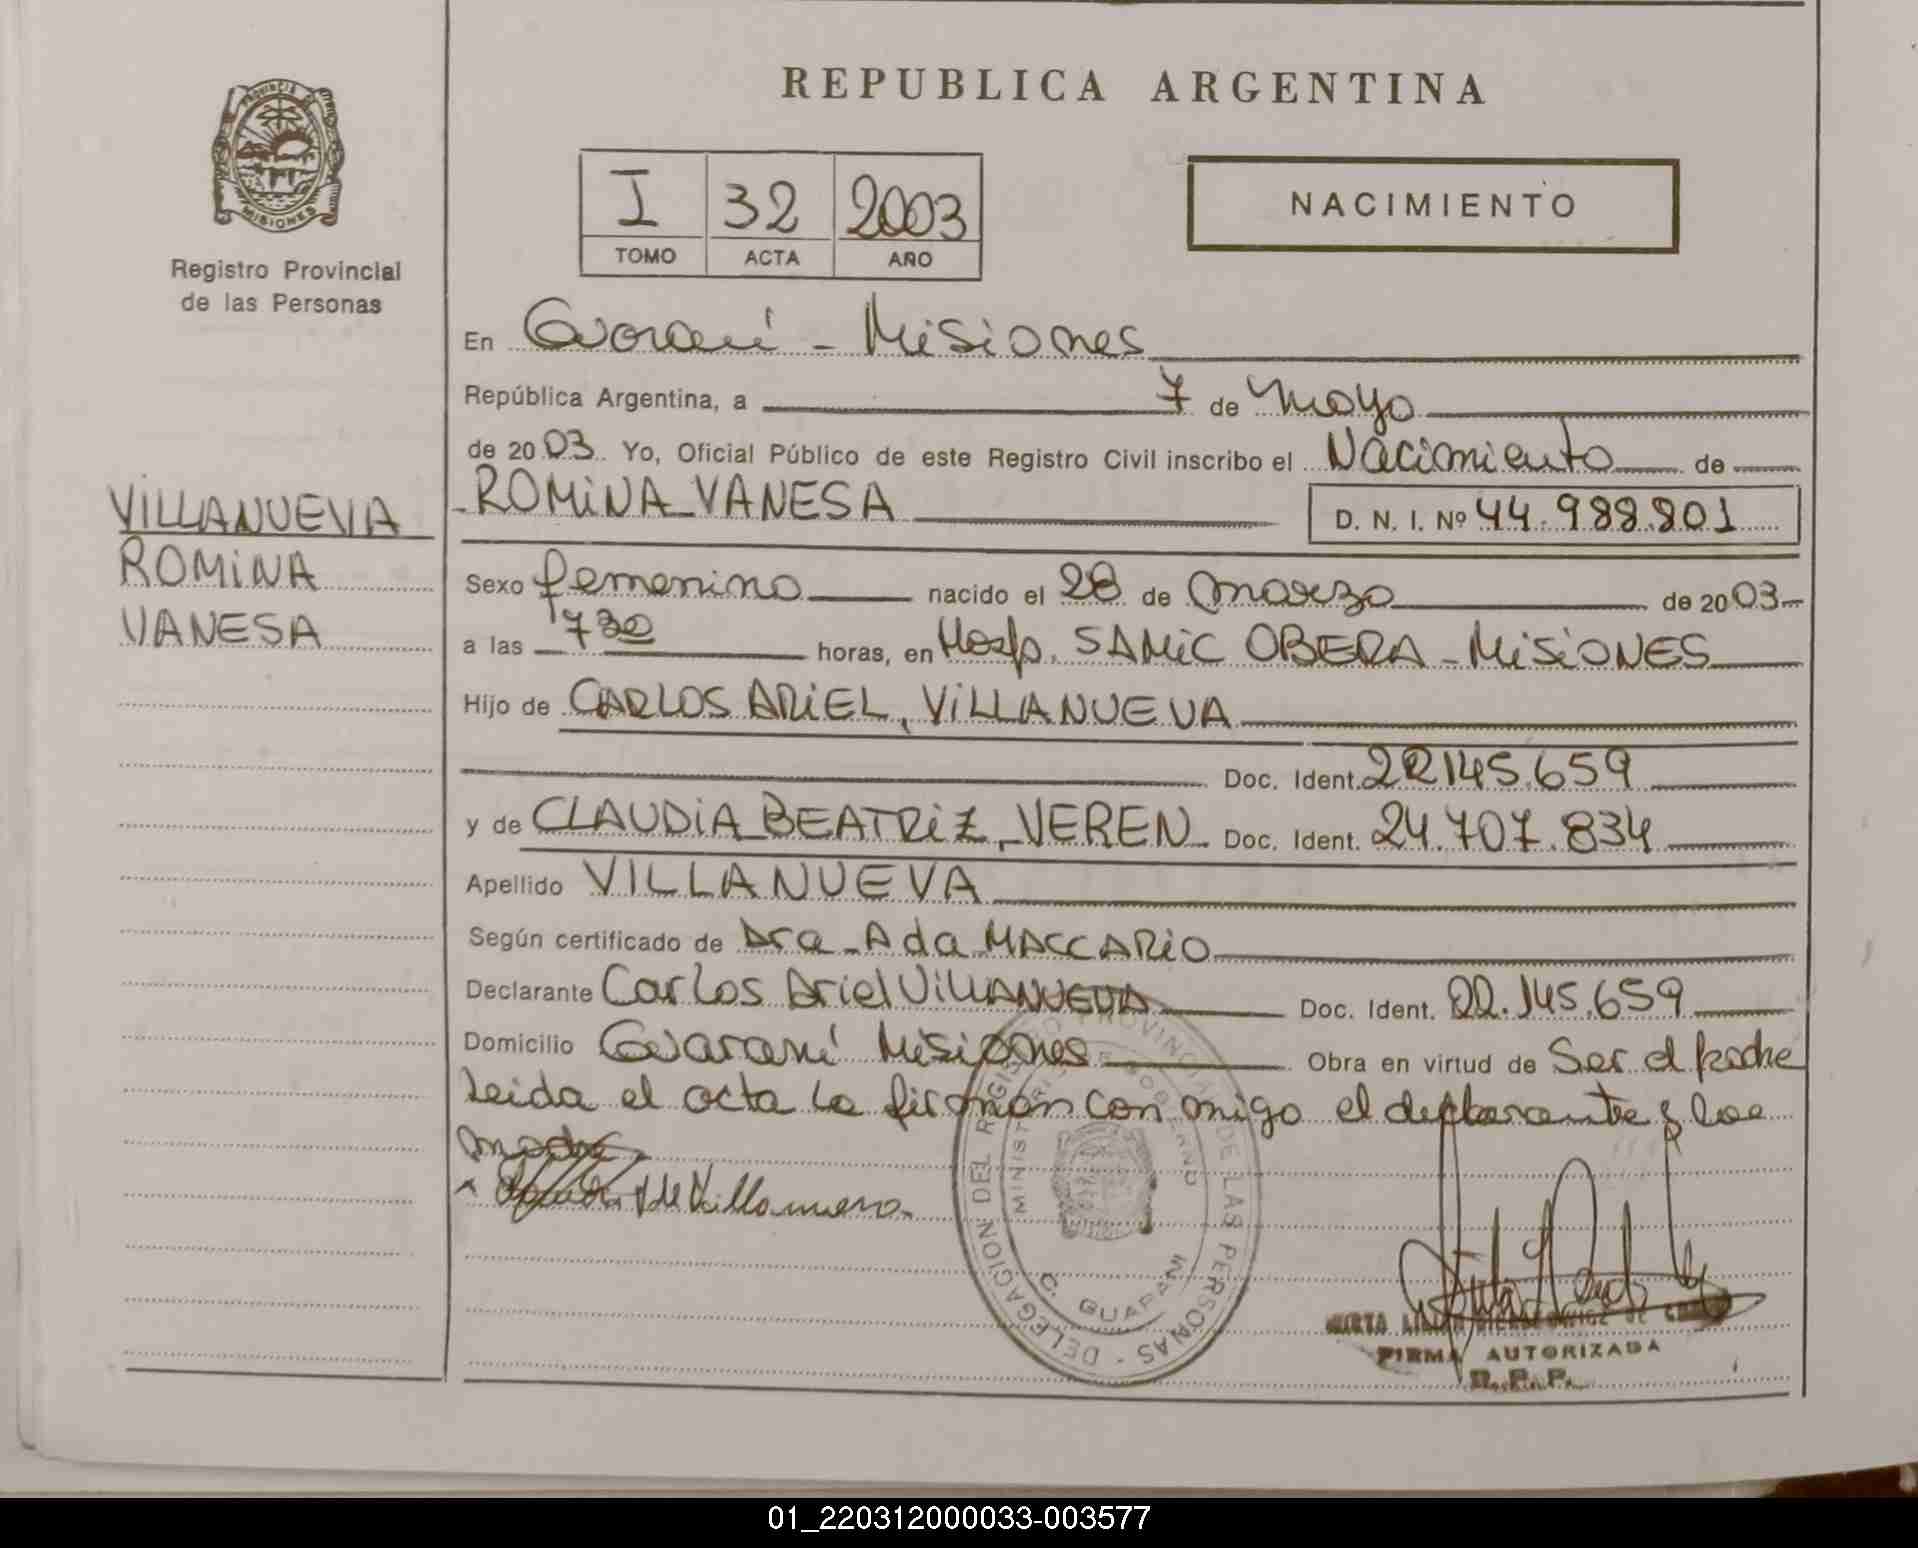 REPUBLICA ARGENTINA
PROVINCIA DE
MISIONES
Registro Provincial
de las Personas
I 32 2003
TOMO ACTA AÑO
NACIMIENTO
En Guaraní - Misiones
República Argentina, a 7 de Mayo
de 2003 Yo, Oficial Público de este Registro Civil inscribo el Nacimiento de
ROMINA VANESA D. N. I. Nº 44.988.801
VILLANUEVA
ROMINA
VANESA
Sexo femenino nacido el 28 de marzo de 2003
a las 7 30 horas, en Hosp. SAMIC OBERA - MISIONES
Hijo de CARLOS ARIEL, VILLANUEVA
Doc. Ident. 22.145.659
y de CLAUDIA BEATRIZ, VEREN Doc. Ident. 24.707.834
Apellido VILLANUEVA
Según certificado de Dra. Ada MACCARIO
Declarante Carlos Ariel VILLANUEVA Doc. Ident. 22.145.659
Domicilio Guaraní Misiones Obra en virtud de Ser el padre
Leida el acta la firman con migo el declarante y la
madre
de Villanueva
DELEGACION DEL REGISTRO PROVINCIAL DE LAS PERSONAS
MINISTERIO DE GOBIERNO
C. GUARANI
MIRTA
FIRMA AUTORIZADA
R. P. P.
01_220312000033-003577